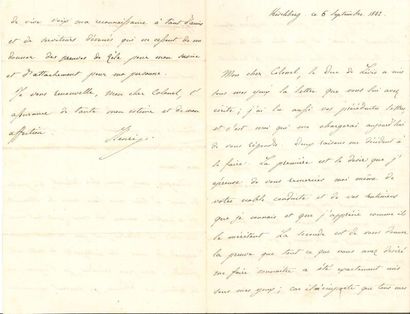 Kirchberg, ce 6 Septembre 1882.
Mon cher Colonel, le Duc de Lévis a mis
sous mes yeux la lettre que vous lui avez
écrite; j'ai lu aussi vos précédentes lettres
et c'est moi qui me chargerai aujourd'hui
de vous répondre. Deux raisons me décident à
le faire. La première est le désir que j'
éprouve de vous remercier moi même de
votre noble conduite et de vos sentimens
que je connais et que j'apprécie comme ils
le méritent. La seconde est de vous donner
la preuve que tout ce que vous avez désiré
me faire connaître a été exactement mis
sous mes yeux; car il m'importe que tous mes
de vive voix ma reconnaissance à tant d'amis
et de serviteurs dévoués qui ne cessent de me
donner des preuves de zèle pour mon service
et d'attachement pour ma personne.
Je vous renouvelle, mon cher Colonel, l'
assurance de toute mon estime et de mon
affection.
Henri